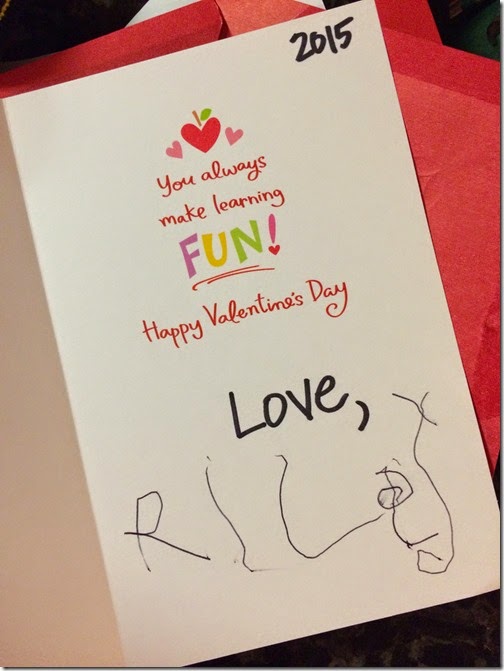 2015
You always
make learning
FUN!
Happy Valentine's Day
Love,
RILEY